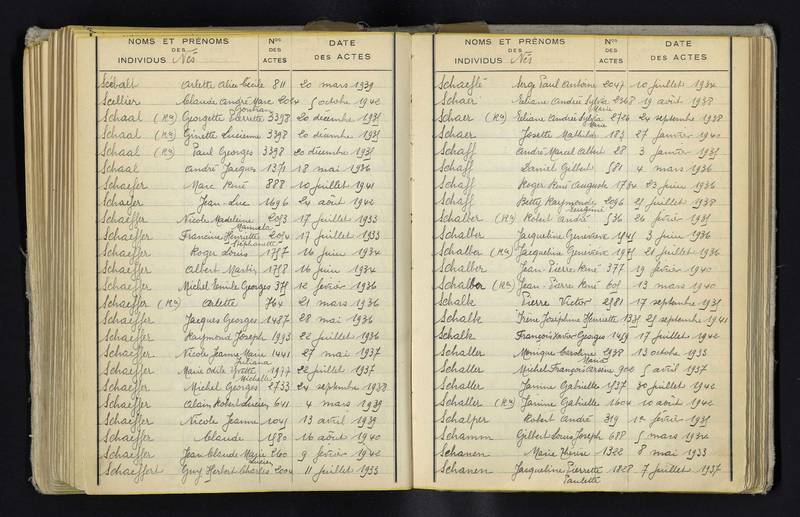 NOMS ET PRÉNOMS
DES
INDIVIDUS Nés
Nos
DES
ACTES
DATE
DES ACTES
Arlette Alice Cécile 811 20 mars 1939
Scellier Claude André Marc 2024 5 octobre 1942
Gontran
Schaal (Rn) Georgette Pierrette 3398 20 décembre 1935
Schaal (Rn) Ginette Lucienne 3398 20 décembre 1935
Schaal (Rn) Paul Georges 3398 20 décembre 1935
Schaal André Jacques 1371 18 mai 1936
Schaefer Marc René 888 10 juillet 1941
Schaefer Jean-Luc 1696 24 août 1942
Schaeffer Nicole Madeleine 2053 17 juillet 1933
Manuela
Schaeffer Francine Henriette 2054 17 juillet 1933
Stéphanette
Schaeffer Roger Louis 1757 16 juin 1934
Schaeffer Albert Martin 1758 16 juin 1934
Schaeffer Michel Emile Georges 375 12 février 1936
Schaeffer (Rn) Arlette 764 21 mars 1936
Schaeffer Jacques Georges 1487 28 mai 1936
Schaeffer Raymond Joseph 1993 22 juillet 1936
Schaeffer Nicole Jeanne Marie 1441 27 mai 1937
Juliana
Schaeffer Marie Odile Yvette 1977 22 juillet 1937
Michelle
Schaeffer Michel Georges 2733 24 septembre 1938
Schaeffer Alain Robert Lucien 641 4 mars 1939
Schaeffer Nicole Jeanne 1041 13 avril 1939
Schaeffer Claude 1580 16 août 1940
Schaeffer Jean Claude Marie 260 9 février 1942
Lucien
Schaeffert Guy Herbert Charles 2004 11 juillet 1933
NOMS ET PRÉNOMS
DES
INDIVIDUS Nés
Nos
DES
ACTES
DATE
DES ACTES
Serge Paul Antoine 2047 10 juillet 1934
Schaer Eliane Andrée Sylvia 2368 19 août 1938
Marie
Schaer (Rn) Eliane Andrée Sylvia 2726 24 septembre 1938
Marie
Schaer Josette Mathilde 183 27 janvier 1940
Schaff André Marcel Albert 28 3 janvier 1935
Schaff Daniel Gilbert 581 4 mars 1936
Schaff Roger René Auguste 1734 23 juin 1936
Schaff Betty Raymonde 2096 21 juillet 1938
Eugénie
Schalber (Rn) Robert André 536 26 février 1935
Schalber Jacqueline Geneviève 1545 3 juin 1936
Schalber (Rn) Jacqueline Geneviève 1975 21 juillet 1936
Schalber Jean-Pierre René 377 19 février 1940
Schalber (Rn) Jean-Pierre René 601 13 mars 1940
Schalk Pierre Victor 2581 17 septembre 1935
Schalk Irène Joséphine Henriette 1331 25 septembre 1941
Schalk François Xavier Georges 1459 17 juillet 1942
Schaller Monique Caroline 2938 13 octobre 1933
Marie
Schaller Michel François Arsène 902 5 avril 1937
Schaller Janine Gabrielle 1537 30 juillet 1942
Schaller (Rn) Janine Gabrielle 1604 10 août 1942
Schalper Robert André 319 1er février 1935
Schamm Gilbert Louis Joseph 688 5 mars 1934
Schanen Marie Thérèse 1322 8 mai 1933
Schanen Jacqueline Pierrette 1828 7 juillet 1937
Paulette